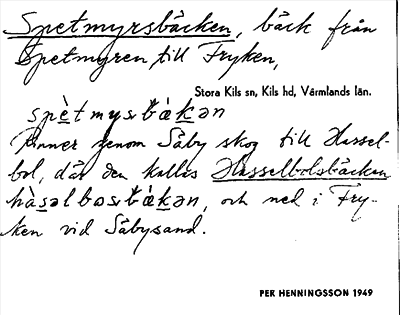 Spetmyrsbäcken, bäck från
Spetmyren till Fryken,
Stora Kils sn, Kils hd, Värmlands län.
spètmysbækən
Rinner genom Såby skog till Hassel-
bol, där den kallas Hasselbolsbäcken
hàsəlbosbækən, och ned i Fry-
ken vid Såbysand.
PER HENNINGSSON 1949